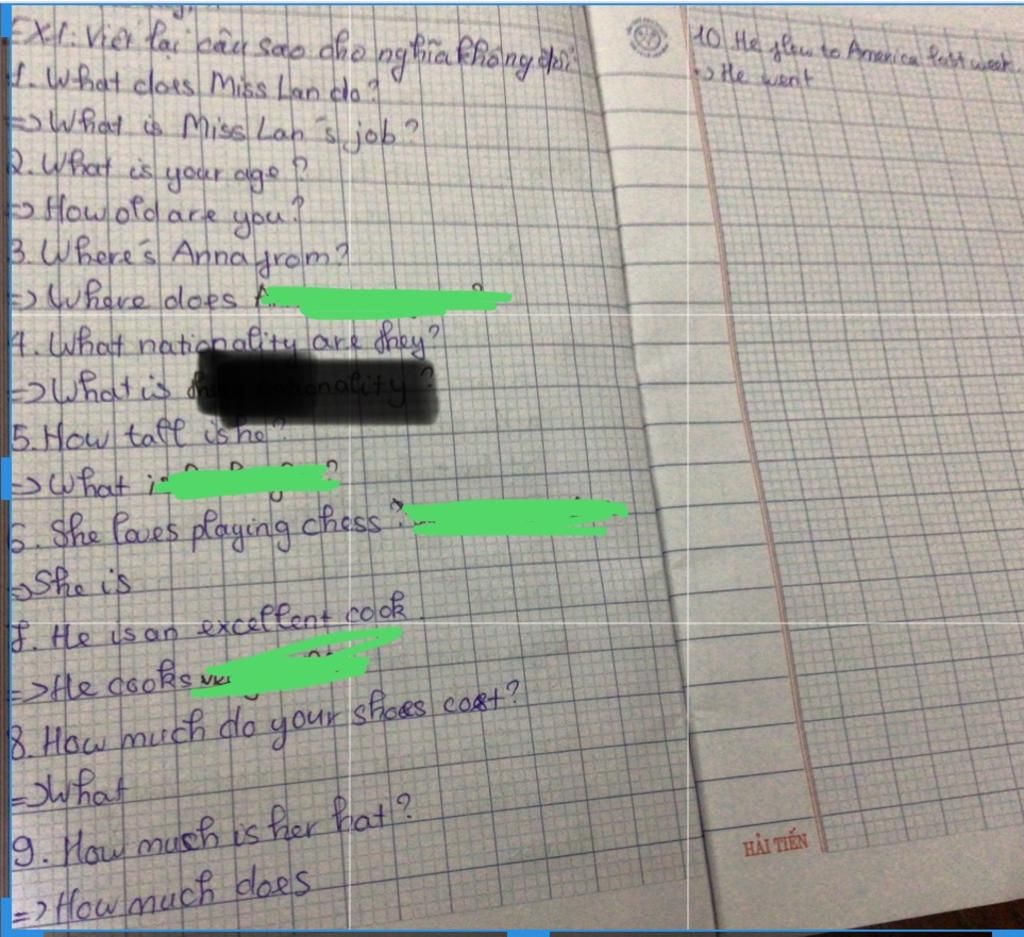 EX1: Viết lại câu sao cho nghĩa không đổi
1. What does Miss Lan do?
=> What is Miss Lan's job?
2. What is your age?
=> How old are you?
3. Where's Anna from?
=> Where does
4. What nationality are they?
=> What is nationality?
5. How tall is he?
=> What is
6. She loves playing chess
=> She is
7. He is an excellent cook.
=> He cooks
8. How much do your shoes cost?
=> What
9. How much is her hat?
=> How much does
10. He flew to America last week.
=> He went
HẢI TIẾN